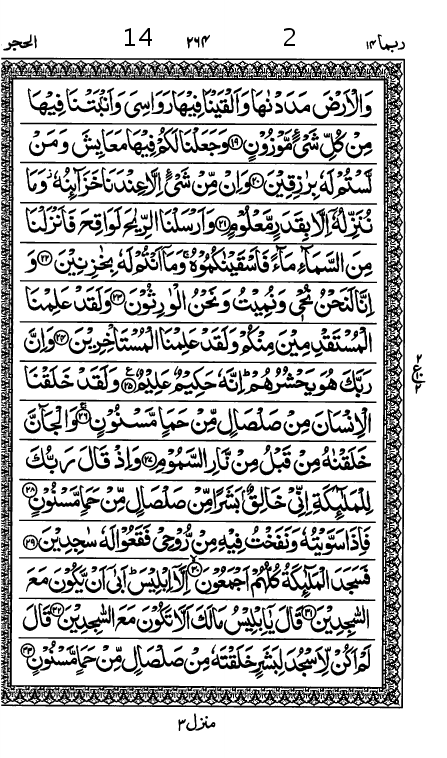 ربما ١٤ 2 ٢٦٤ 14 الحجر
وَالْاَرْضَ مَدَدْنٰهَا وَاَلْقَيْنَا فِيْهَا رَوَاسِىَ وَاَنْۢبَتْنَا فِيْهَا
مِنْ كُلِّ شَىْءٍ مَّوْزُوْنٍ ﴿١٩﴾ وَجَعَلْنَا لَكُمْ فِيْهَا مَعَايِشَ وَمَنْ
لَّسْتُمْ لَهٗ بِرٰزِقِيْنَ ﴿٢٠﴾ وَاِنْ مِّنْ شَىْءٍ اِلَّا عِنْدَنَا خَزَآئِنُهٗ وَمَا
نُنَزِّلُهٗۤ اِلَّا بِقَدَرٍ مَّعْلُوْمٍ ﴿٢١﴾ وَاَرْسَلْنَا الرِّيٰحَ لَوَاقِحَ فَاَنْزَلْنَا
مِنَ السَّمَآءِ مَآءً فَاَسْقَيْنٰكُمُوْهُ وَمَاۤ اَنْتُمْ لَهٗ بِخٰزِنِيْنَ ﴿٢٢﴾ وَ
اِنَّا لَنَحْنُ نُحْىٖ وَنُمِيْتُ وَنَحْنُ الْوٰرِثُوْنَ ﴿٢٣﴾ وَلَقَدْ عَلِمْنَا
الْمُسْتَقْدِمِيْنَ مِنْكُمْ وَلَقَدْ عَلِمْنَا الْمُسْتَاْخِرِيْنَ ﴿٢٤﴾ وَاِنَّ
رَبَّكَ هُوَ يَحْشُرُهُمْ ؕ اِنَّهٗ حَكِيْمٌ عَلِيْمٌ ﴿٢٥﴾ وَلَقَدْ خَلَقْنَا
الْاِنْسَانَ مِنْ صَلْصَالٍ مِّنْ حَمَاٍ مَّسْنُوْنٍ ﴿٢٦﴾ وَالْجَآنَّ
خَلَقْنٰهُ مِنْ قَبْلُ مِنْ نَّارِ السَّمُوْمِ ﴿٢٧﴾ وَاِذْ قَالَ رَبُّكَ
لِلْمَلٰٓئِكَةِ اِنِّىْ خَالِقٌۢ بَشَرًا مِّنْ صَلْصَالٍ مِّنْ حَمَاٍ مَّسْنُوْنٍ ﴿٢٨﴾
فَاِذَا سَوَّيْتُهٗ وَنَفَخْتُ فِيْهِ مِنْ رُّوْحِىْ فَقَعُوْا لَهٗ سٰجِدِيْنَ ﴿٢٩﴾
فَسَجَدَ الْمَلٰٓئِكَةُ كُلُّهُمْ اَجْمَعُوْنَ ﴿٣٠﴾ اِلَّاۤ اِبْلِيْسَ ؕ اَبٰٓى اَنْ يَّكُوْنَ مَعَ
السّٰجِدِيْنَ ﴿٣١﴾ قَالَ يٰۤاِبْلِيْسُ مَا لَكَ اَلَّا تَكُوْنَ مَعَ السّٰجِدِيْنَ ﴿٣٢﴾ قَالَ
لَمْ اَكُنْ لِّاَسْجُدَ لِبَشَرٍ خَلَقْتَهٗ مِنْ صَلْصَالٍ مِّنْ حَمَاٍ مَّسْنُوْنٍ ﴿٣٣﴾
منزل ٣